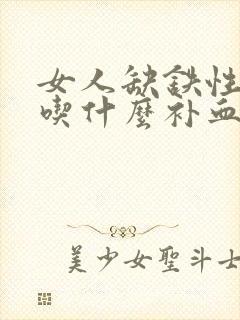 女人缺鉄性
喫什麼补血
美少女聖斗士